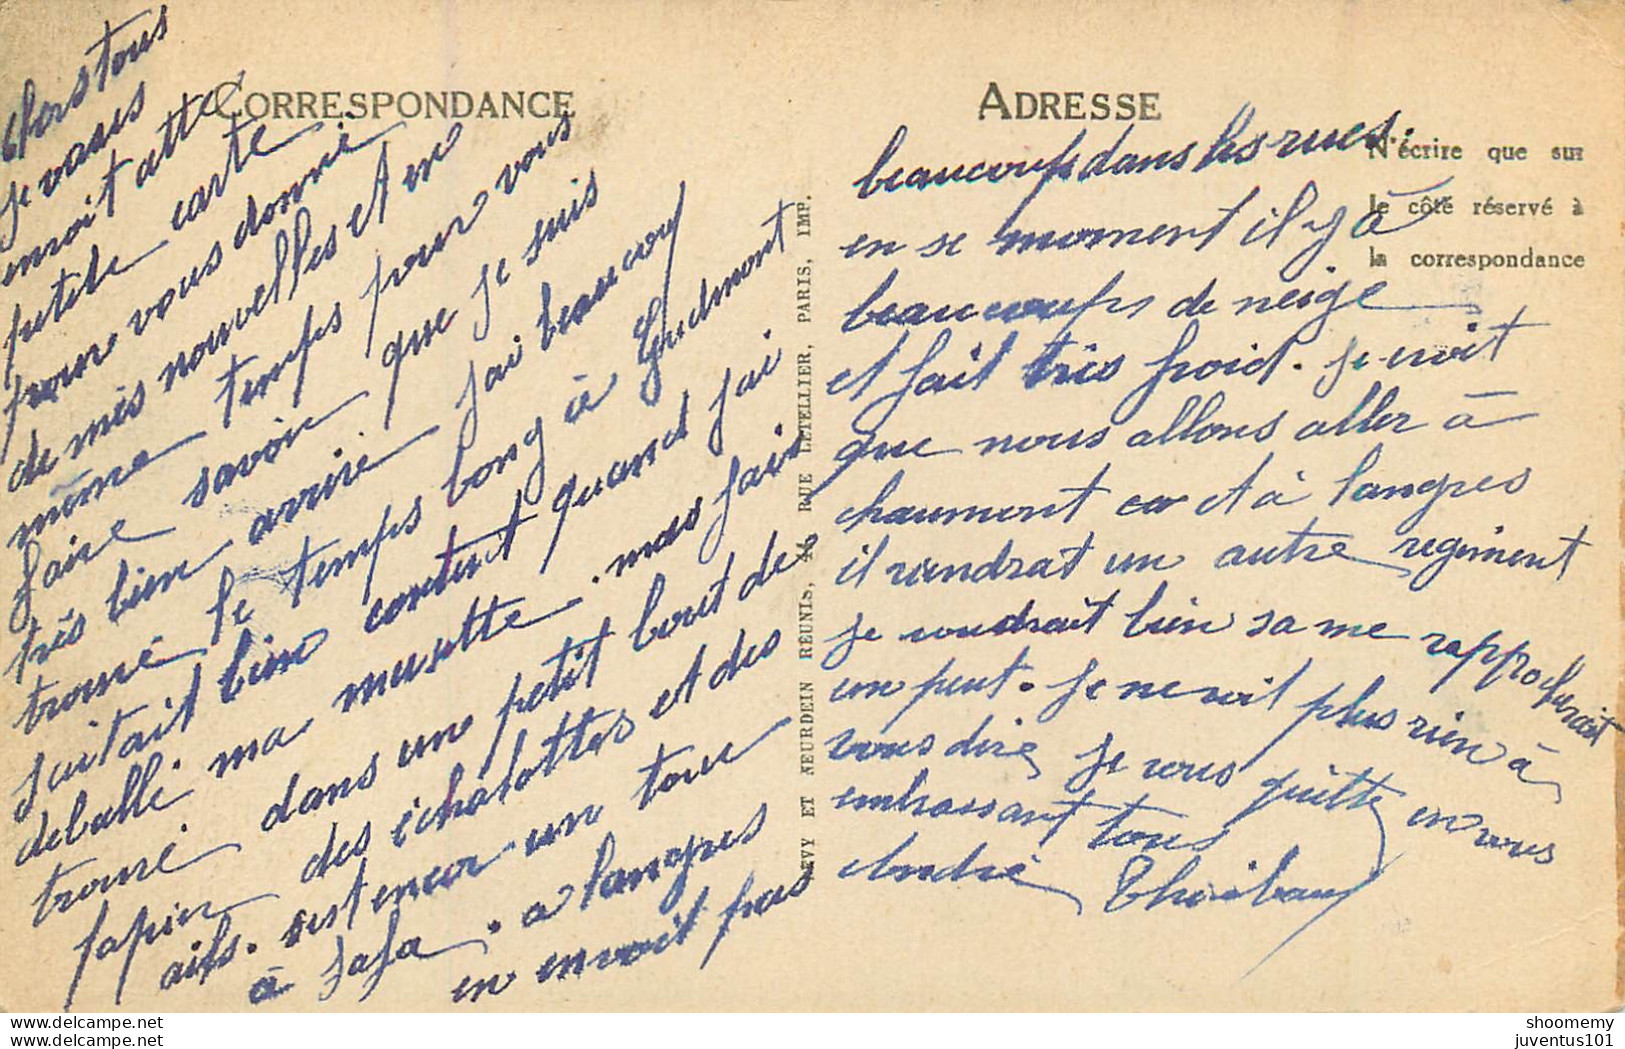 CORRESPONDANCE
Chers tous
je vous
envoit cette
petite carte
pour vous donné
de mes nouvelles et en
même temps pour vous
faire savoir que je suis
très bien arrivé jai beaucoup
trouvé le temps long à Gudmont
jaitait bien contait quand jai
deballé ma musette. mais jais
trouvé dans un petit bout de
papier des échalottes et des
ails. sest encor un tour
à Jaja. a langres
en envoit pas
LEVY ET NEURDEIN REUNIS, 44, RUE LETELLIER, PARIS, IMP.
ADRESSE
N'écrire que sur
le côté réservé à
la correspondance
beaucoup dans les rues.
en se moment il y à
beaucoups de neige
et fait très froid. je croit
que nous allons aller à
chaumont car et à langres
il viendrat un autre regiment
je voudrait bien sa me rapprocherait
un peut. Je ne voit plus rien à
vous dire je vous quitte en vous
embrassant tous
André Thiébaut
shoomemy
juventus101
www.delcampe.net